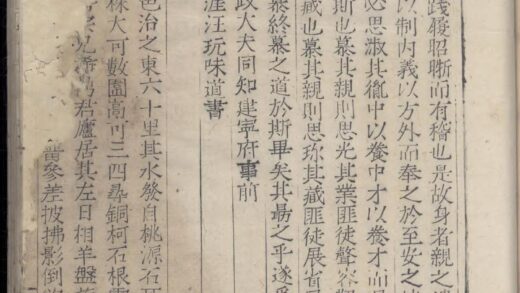 踐履昭晣而有稽也是故身者親之
以制內義以方外而奉之於至安之
必思淑其徒中以養中才以養才而
斯也慕其親則思光其業匪徒聲容
藏也慕其親則思珎其藏匪徒展省
慕終慕之道於斯畢矣其朂之乎遂
政大夫同知建寧府事前
涯汪玩味道書
邑治之東六十里其水發自桃源石
株大可數圍高可三四尋銅柯石根
君廬居其左日相羊盤
畨參差披拂影倒